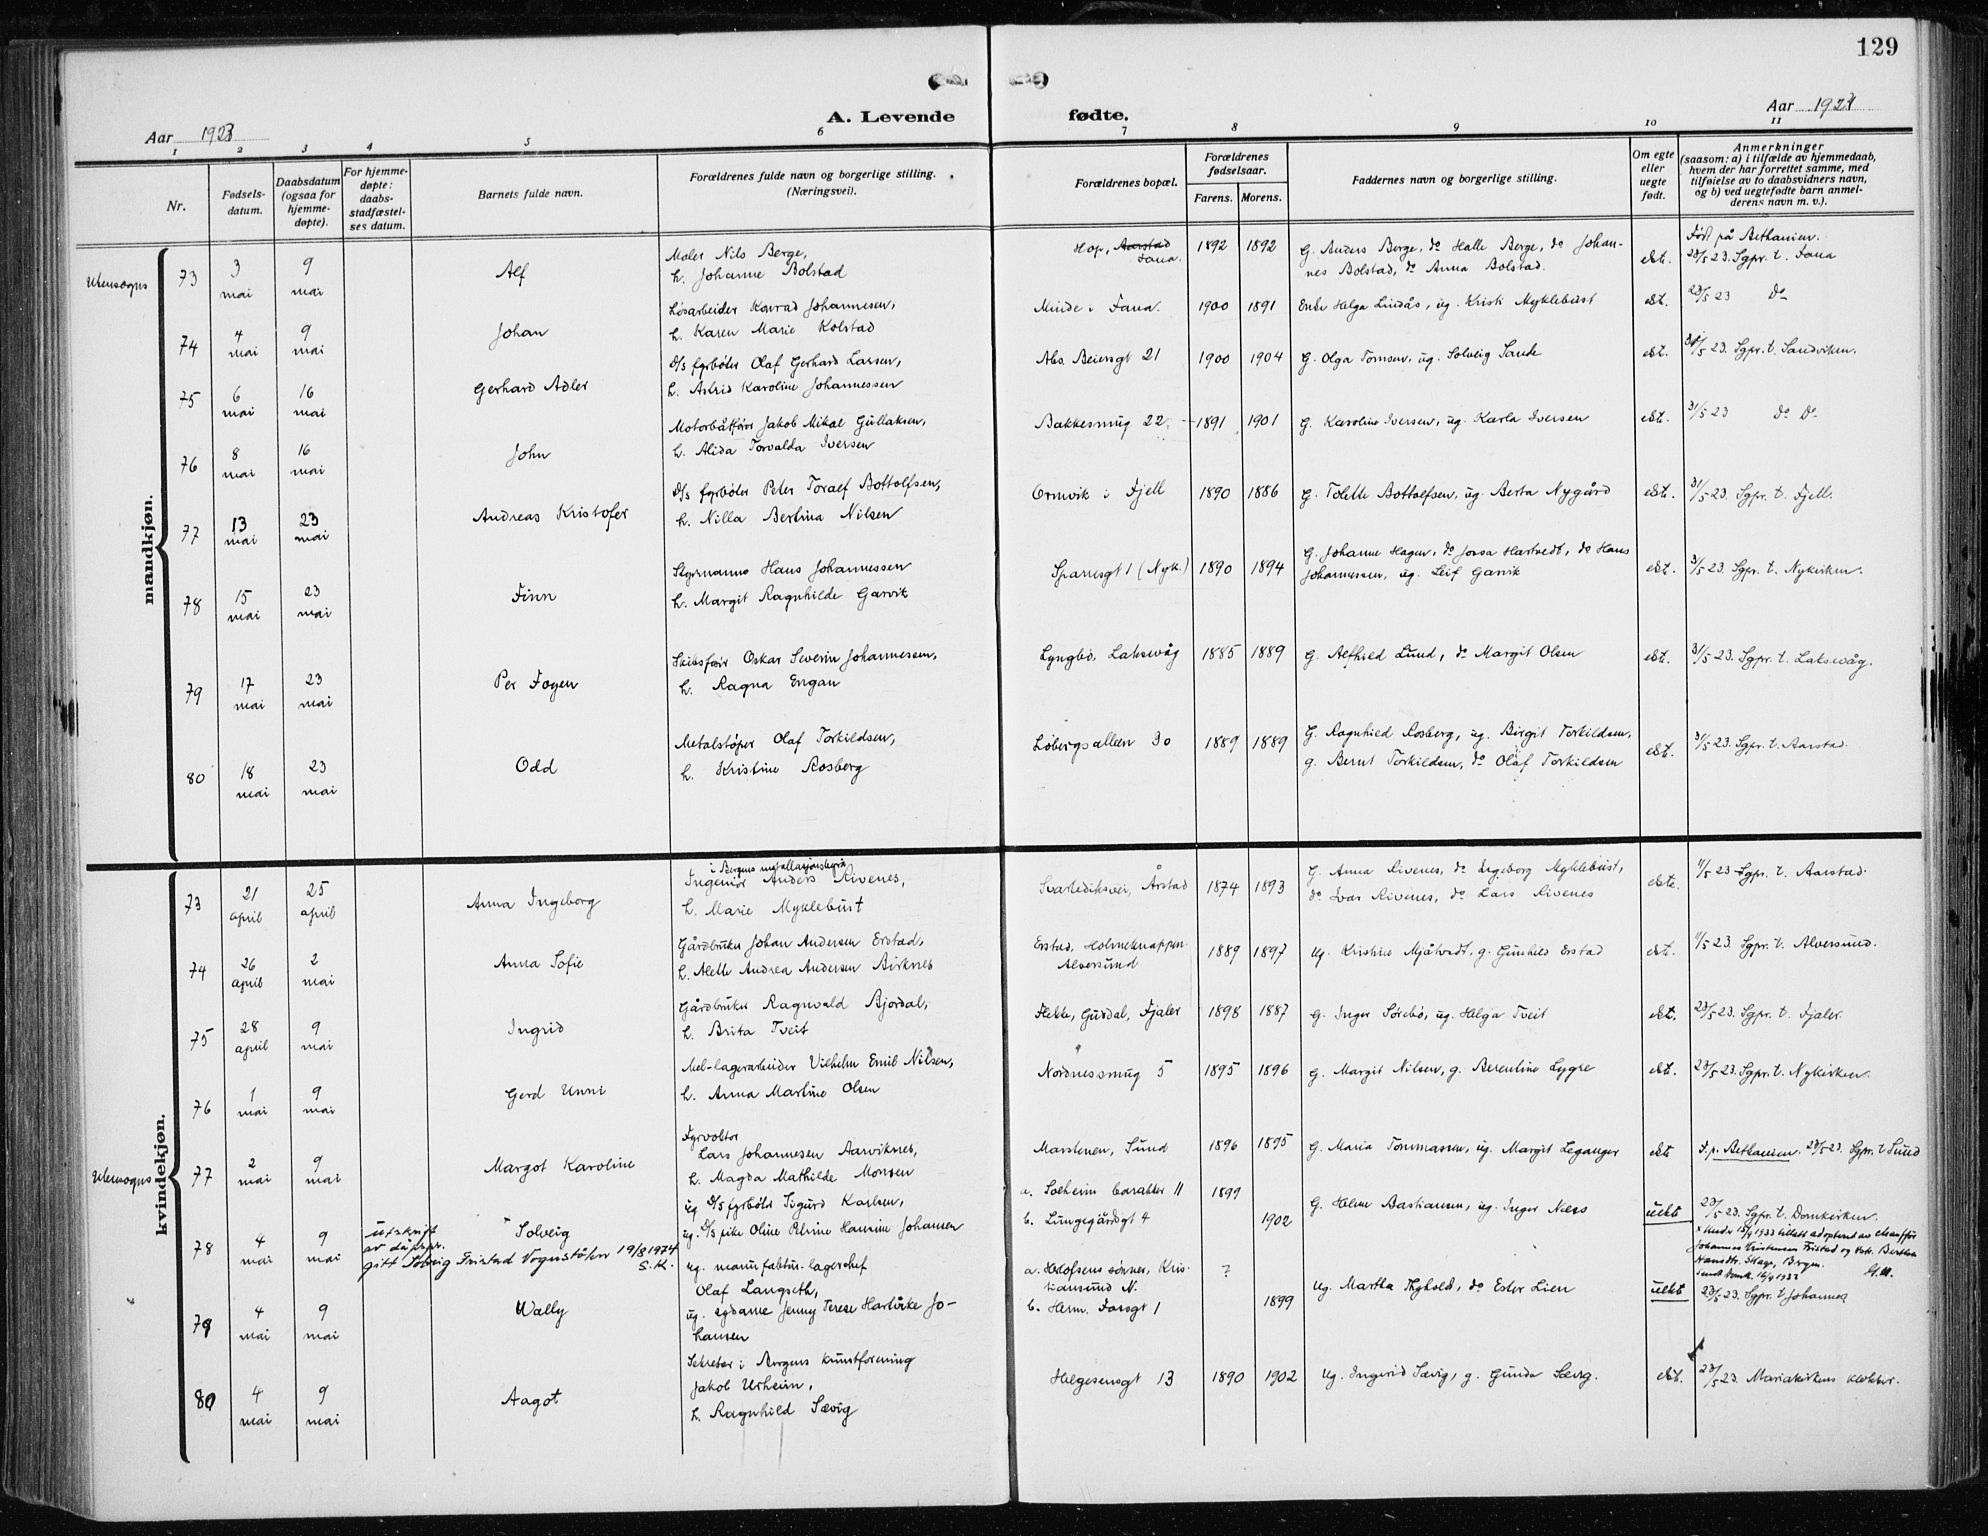 129
A. Levende
fødte.
Aar 1923
Aar 1923
1 2 3 4 5 6 7 8 9 10 11
Nr.
Fødsels-
datum.
Daabsdatum
(ogsaa for
hjemme-
døpte).
For hjemme-
døpte:
daabs-
stadfæstel-
ses datum.
Barnets fulde navn.
Forældrenes fulde navn og borgerlige stilling.
(Næringsvei).
Forældrenes bopæl.
Forældrenes
fødselsaar.
Farens. Morens.
Faddernes navn og borgerlige stilling.
Om egte
eller
uegte
født.
Anmerkninger
(saasom: a) i tilfælde av hjemmedaab,
hvem der har forrettet samme, med
tilføielse av to daabsvidners navn,
og b) ved uegtefødte barn anmel-
derens navn m. v.).
mandkjøn.
Utensogns
73
3 mai
9 mai
Alf
Maler Nils Berge,
h. Johanne Bolstad
Hop, Aarstad
Fana.
1892 1892
G. Anders Berge, do Halle Berge, do Johan-
nes Bolstad, do Anna Bolstad.
ekt.
Født på Bethanien.
23/5 23. Sgpr. t. Fana
74
4 mai
9 mai
Johan
Løsarbeider Konrad Johannesen,
h. Karen Marie Kolstad
Minde i Fana.
1900 1891
Enke Helga Lindås, ug. Kristi Myklebust
ekt.
23/5 23 do
75
6 mai
16 mai
Gerhard Adler
D/s fyrbøter Olaf Gerhard Larsen,
h. Astrid Karoline Johannessen
Abs. Beiersgt 21
1900 1904
G. Olga Tomsen, ug. Solveig Sande
ekt.
31/5 23. Sgpr. t. Sandviken.
76
8 mai
16 mai
John
Motorbåtfører Jakob Mikal Gullaksen,
h. Alida Torvalda Iversen
Bakkesmug 22.
1891 1901
G. Karoline Iversen, ug. Karla Iversen
ekt.
31/5 23 do do
77
13 mai
23 mai
Andreas Kristofer
D/s fyrbøter Peter Toralf Bottolfsen,
h. Nilla Bertina Nilsen
Ormvik i Fjell
1890 1886
G. Tolette Bottolfsen, ug. Berta Nygård
ekt.
31/5 23. Sgpr. t. Fjell.
78
15 mai
23 mai
Finn
Styrmann Hans Johannessen
h. Margit Ragnhilde Garvik
Sparresgt 1 (Nyk.)
1890 1894
G. Johanne Hagen, do Jorsa Hartvedt, do Hans
Johannessen, ug. Leif Garvik
ekt.
31/5 23. Sgpr. t. Nykirken.
79
17 mai
23 mai
Per Foyen
Skibsfører Oskar Severin Johannessen,
h. Ragna Engan
Lyngbø, Laksevåg
1885 1889
G. Alfhild Lund, do Margit Olsen
ekt.
31/5 23. Sgpr. t. Laksevåg.
80
18 mai
23 mai
Odd
Metalstøper Olaf Torkildsen,
h. Kristine Rosberg
Løbergsalleen 30
1889 1889
G. Ragnhild Rosberg, ug. Birgit Torkildsen,
g. Bernt Torkildsen, do Olaf Torkildsen
ekt.
31/5 23. Sgpr. t. Aarstad.
kvindekjøn.
73
21 april
25 april
Anna Ingeborg
i Bergens installasjonsbyrå
Ingeniør Anders Rivenes,
h. Marie Myklebust
Svartediksvei, Årstad
1874 1893
G. Anna Rivenes, do Ingeborg Myklebust,
do Ivar Rivenes, do Lars Rivenes
ekte.
11/5 23 Sgpr. t. Aarstad.
74
26 april
2 mai
Anna Sofie
Gårdbruker Johan Andersen Erstad,
h. Alette Andrea Andersen Birknes
Erstad, Holmeknappen
Alversund
1889 1897
Ug. Kristine Mjåtvedt, g. Gunhild Erstad
ekt.
11/5 23. Sgpr. t. Alversund.
75
28 april
9 mai
Ingrid
Gårdbruker Ragnvald Bjordal,
h. Brita Tveit
Flekke, Guddal, Fjaler
1898 1887
G. Inger Sørebø, ug. Helga Tveit
ekt.
23/5 23. Sgpr. t. Fjaler.
76
1 mai
9 mai
Gerd Unni
Mel-lagerarbeider Vilhelm Emil Nilsen,
h. Anna Martine Olsen
Nordnessmug 5
1895 1896
G. Margit Nilsen, g. Berentine Lygre
ekt.
23/5 23. Sgpr. t. Nykirken.
Utensogns
77
2 mai
9 mai
Margot Karoline
Fyrvokter
Lars Johannesen Aarviknes,
h. Magda Mathilde Monsen
Marstenen, Sund
1896 1895
G. Maria Tommassen, ug. Margit Leganger
ekt
F. p. Bethanien. 23/5 23. Sgpr. t. Sund
78
4 mai
9 mai
utskrift
av dåpspr.
gitt Solveig Fristad Vognstølen 19/8 1974
S.K.
Solveig
ug D/s fyrbøter Sigurd Karlsen,
ug. D/s pike Oline Petrine Hansine Johansen
a. Solheim barakker 11
b. Lungegårdsgt 4
1899
1902
G. Helene Bastiansen, ug. Inger Næss
uekte
23/5 23. Sgpr. t. Domkirken.
79
4 mai
9 mai
Wally
ug. manufaktur-lagerchef
Olaf Langseth,
ug. sydame Jenny Terese Hartvike Jo-
hansen
a. Kristiansund N.
b. Herm. Fossgt 1
?
1899
Ug. Martha Thyhold, do Ester Lien
uekte
23/5 23. Sgpr. t. Johannes
80
4 mai
9 mai
Aagot
Sekretær i Bergens kunstforening
Jakob Urheim,
h. Ragnhild Sævig
Helgesensgt 13
1890 1902
Ug. Ingerid Sævig, g. Gunda Sævig.
ekt.
23/5 23. Mariakirkens klokker.